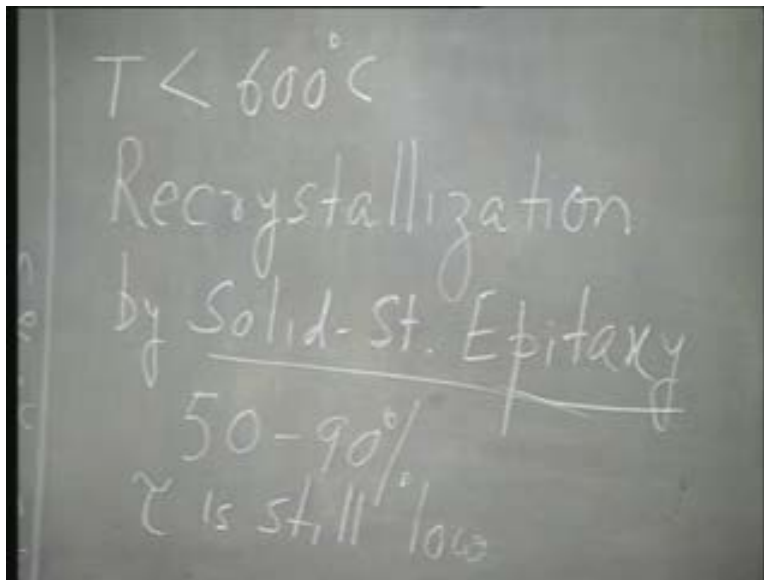 T < 600°C
Recrystallization
by Solid-St. Epitaxy
50-90%
τ is still low